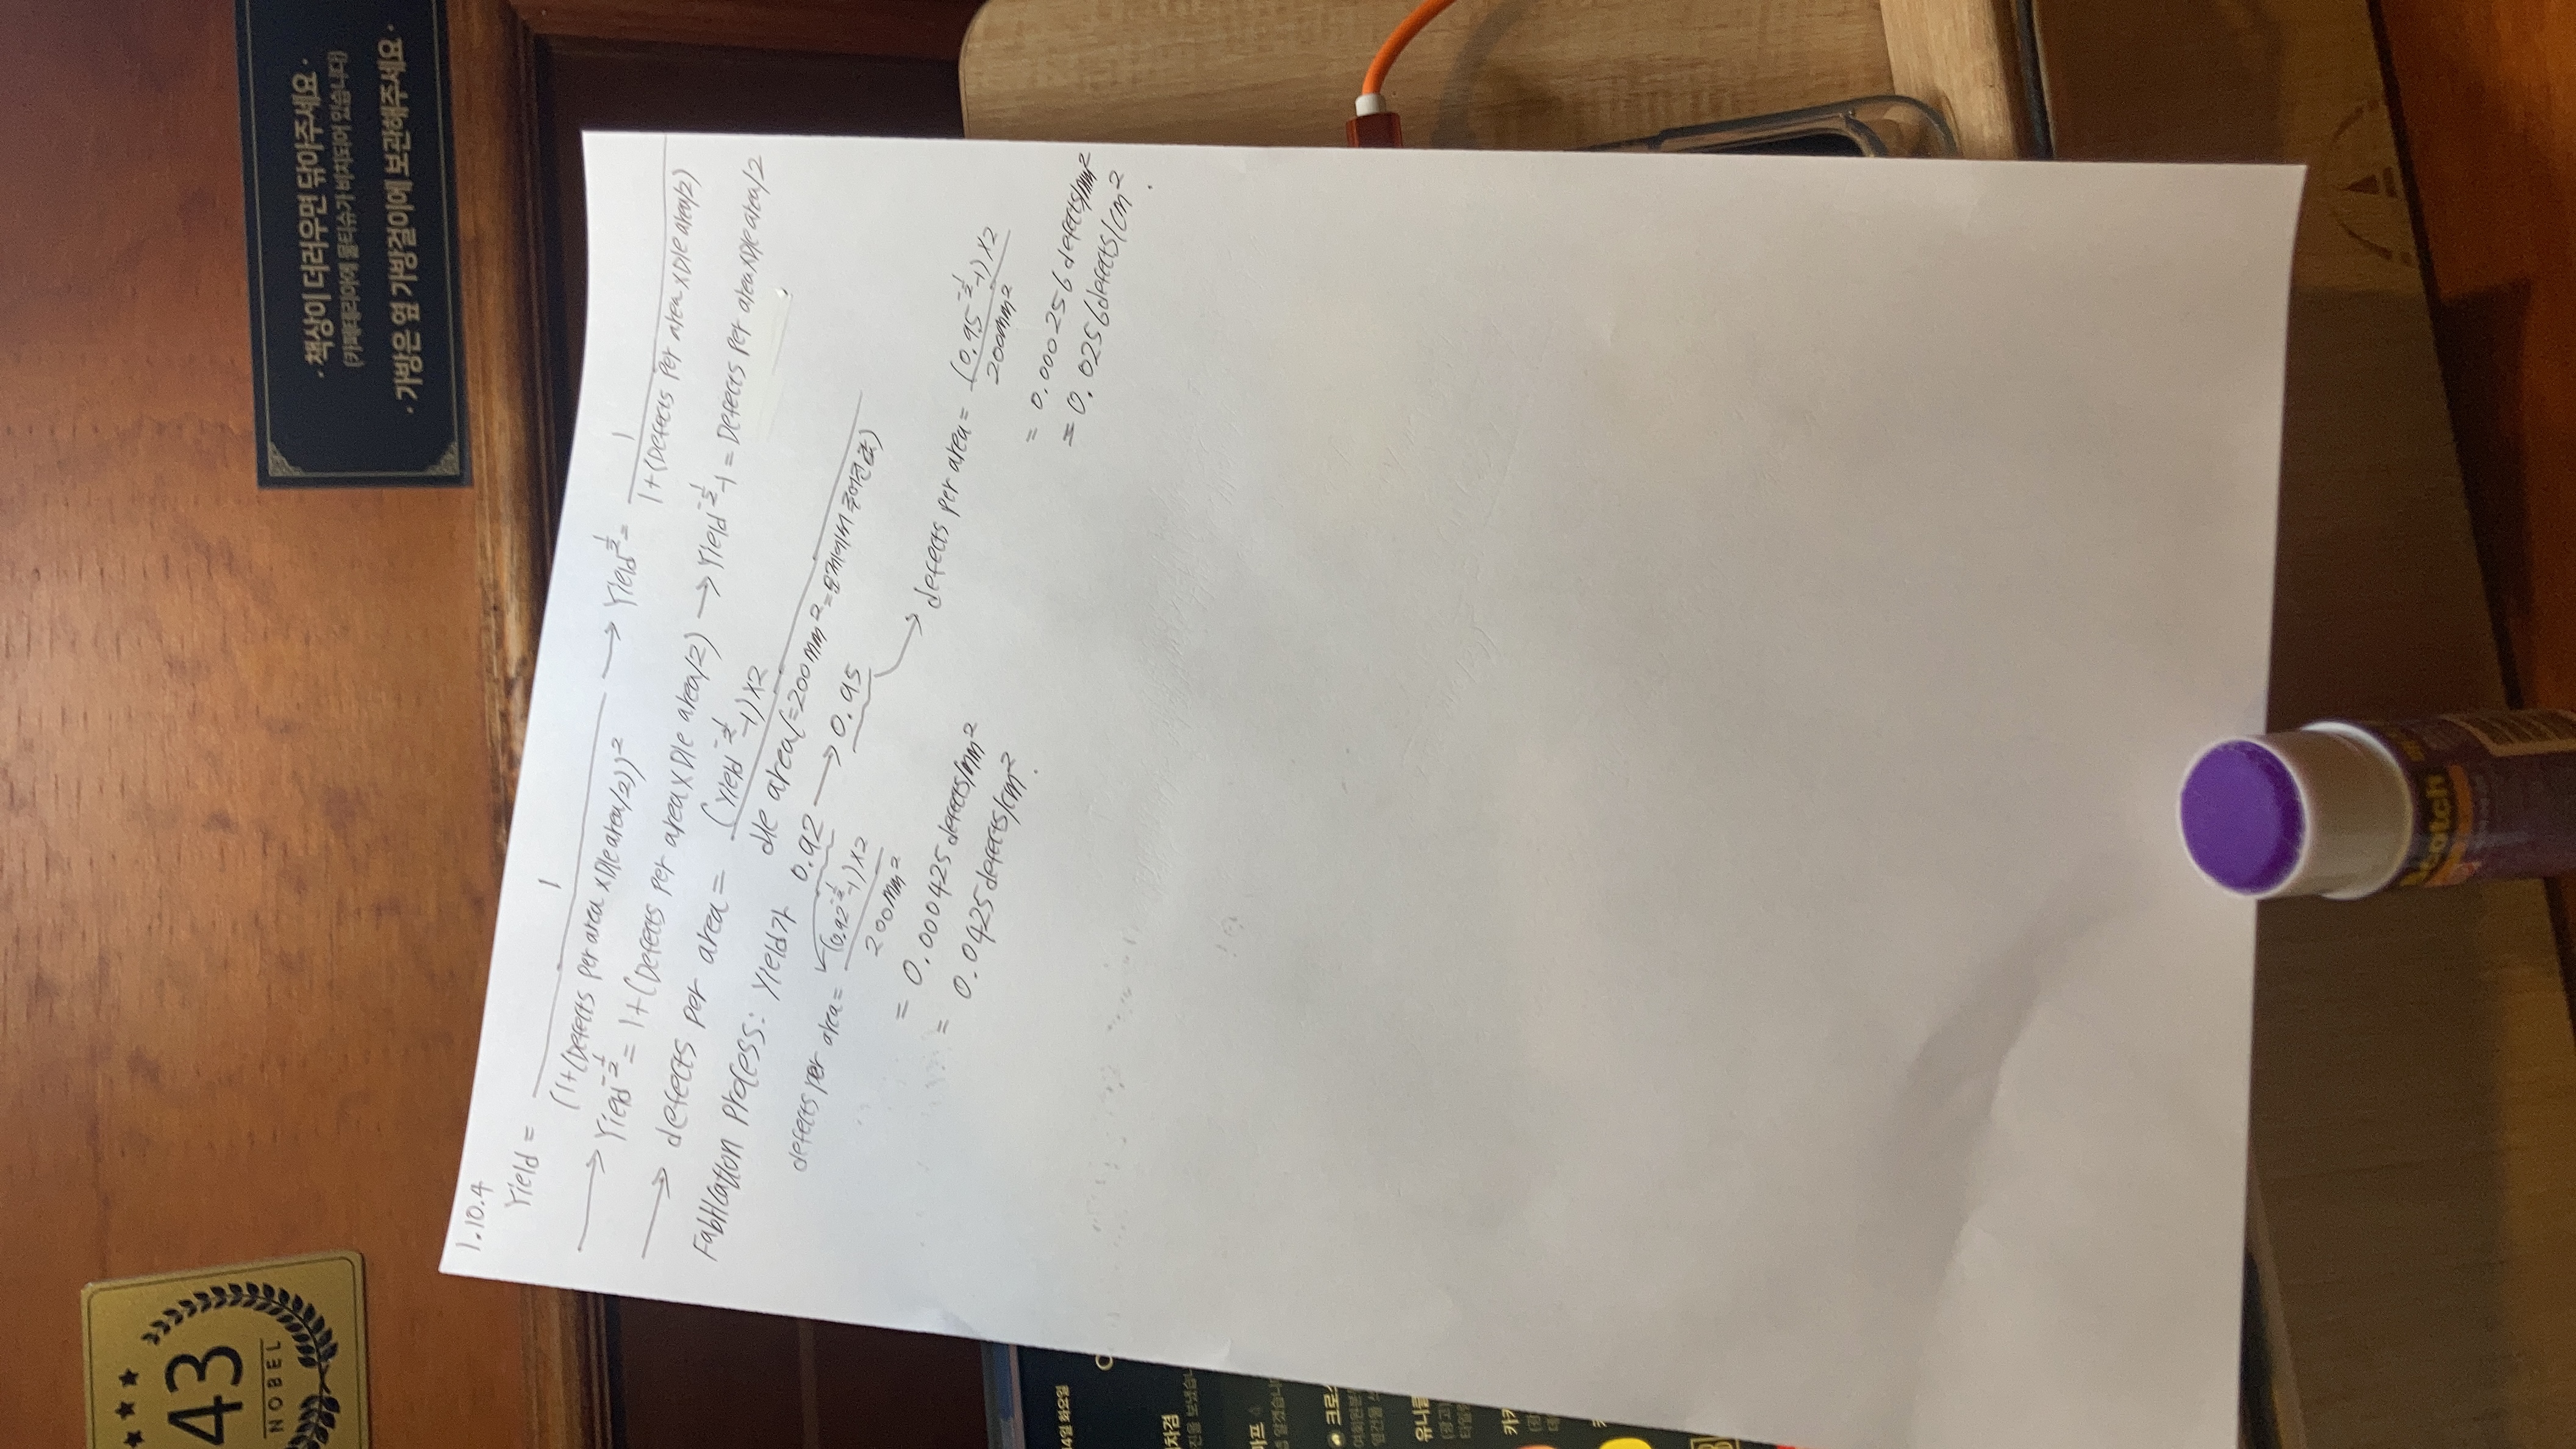 43
NOBEL
· 책상이 더러우면 닦아주세요 ·
(카페테리아에 물티슈가 비치되어 있습니다)
· 가방은 옆 가방걸이에 보관해주세요 ·
1.10.4
Yield = 1 / (1+(Defects per area x Die area/2))² → Yield^½ = 1 / 1+(Defects per area x Die area/2)
→ Yield^-½ = 1+(Defects per area x Die area/2) → Yield^-½ -1 = Defects per area x Die area/2
→ defects per area = (Yield^-½ -1)x2 / die area(=200mm²=문제에서 주어진 값)
Fabrication Process: Yield가 0.92 → 0.95
defects per area = (0.92^-½ -1)x2 / 200mm²
= 0.000425 defects/mm²
= 0.0425 defects/cm².
defects per area = (0.95^-½ -1)x2 / 200mm²
= 0.000256 defects/mm²
= 0.0256 defects/cm².
4일 화요일
차겸
진을 보냈습니
마프 4
알겠습니다
크로스
여회원분
유니클
(광고)
타일
카카
Scotch